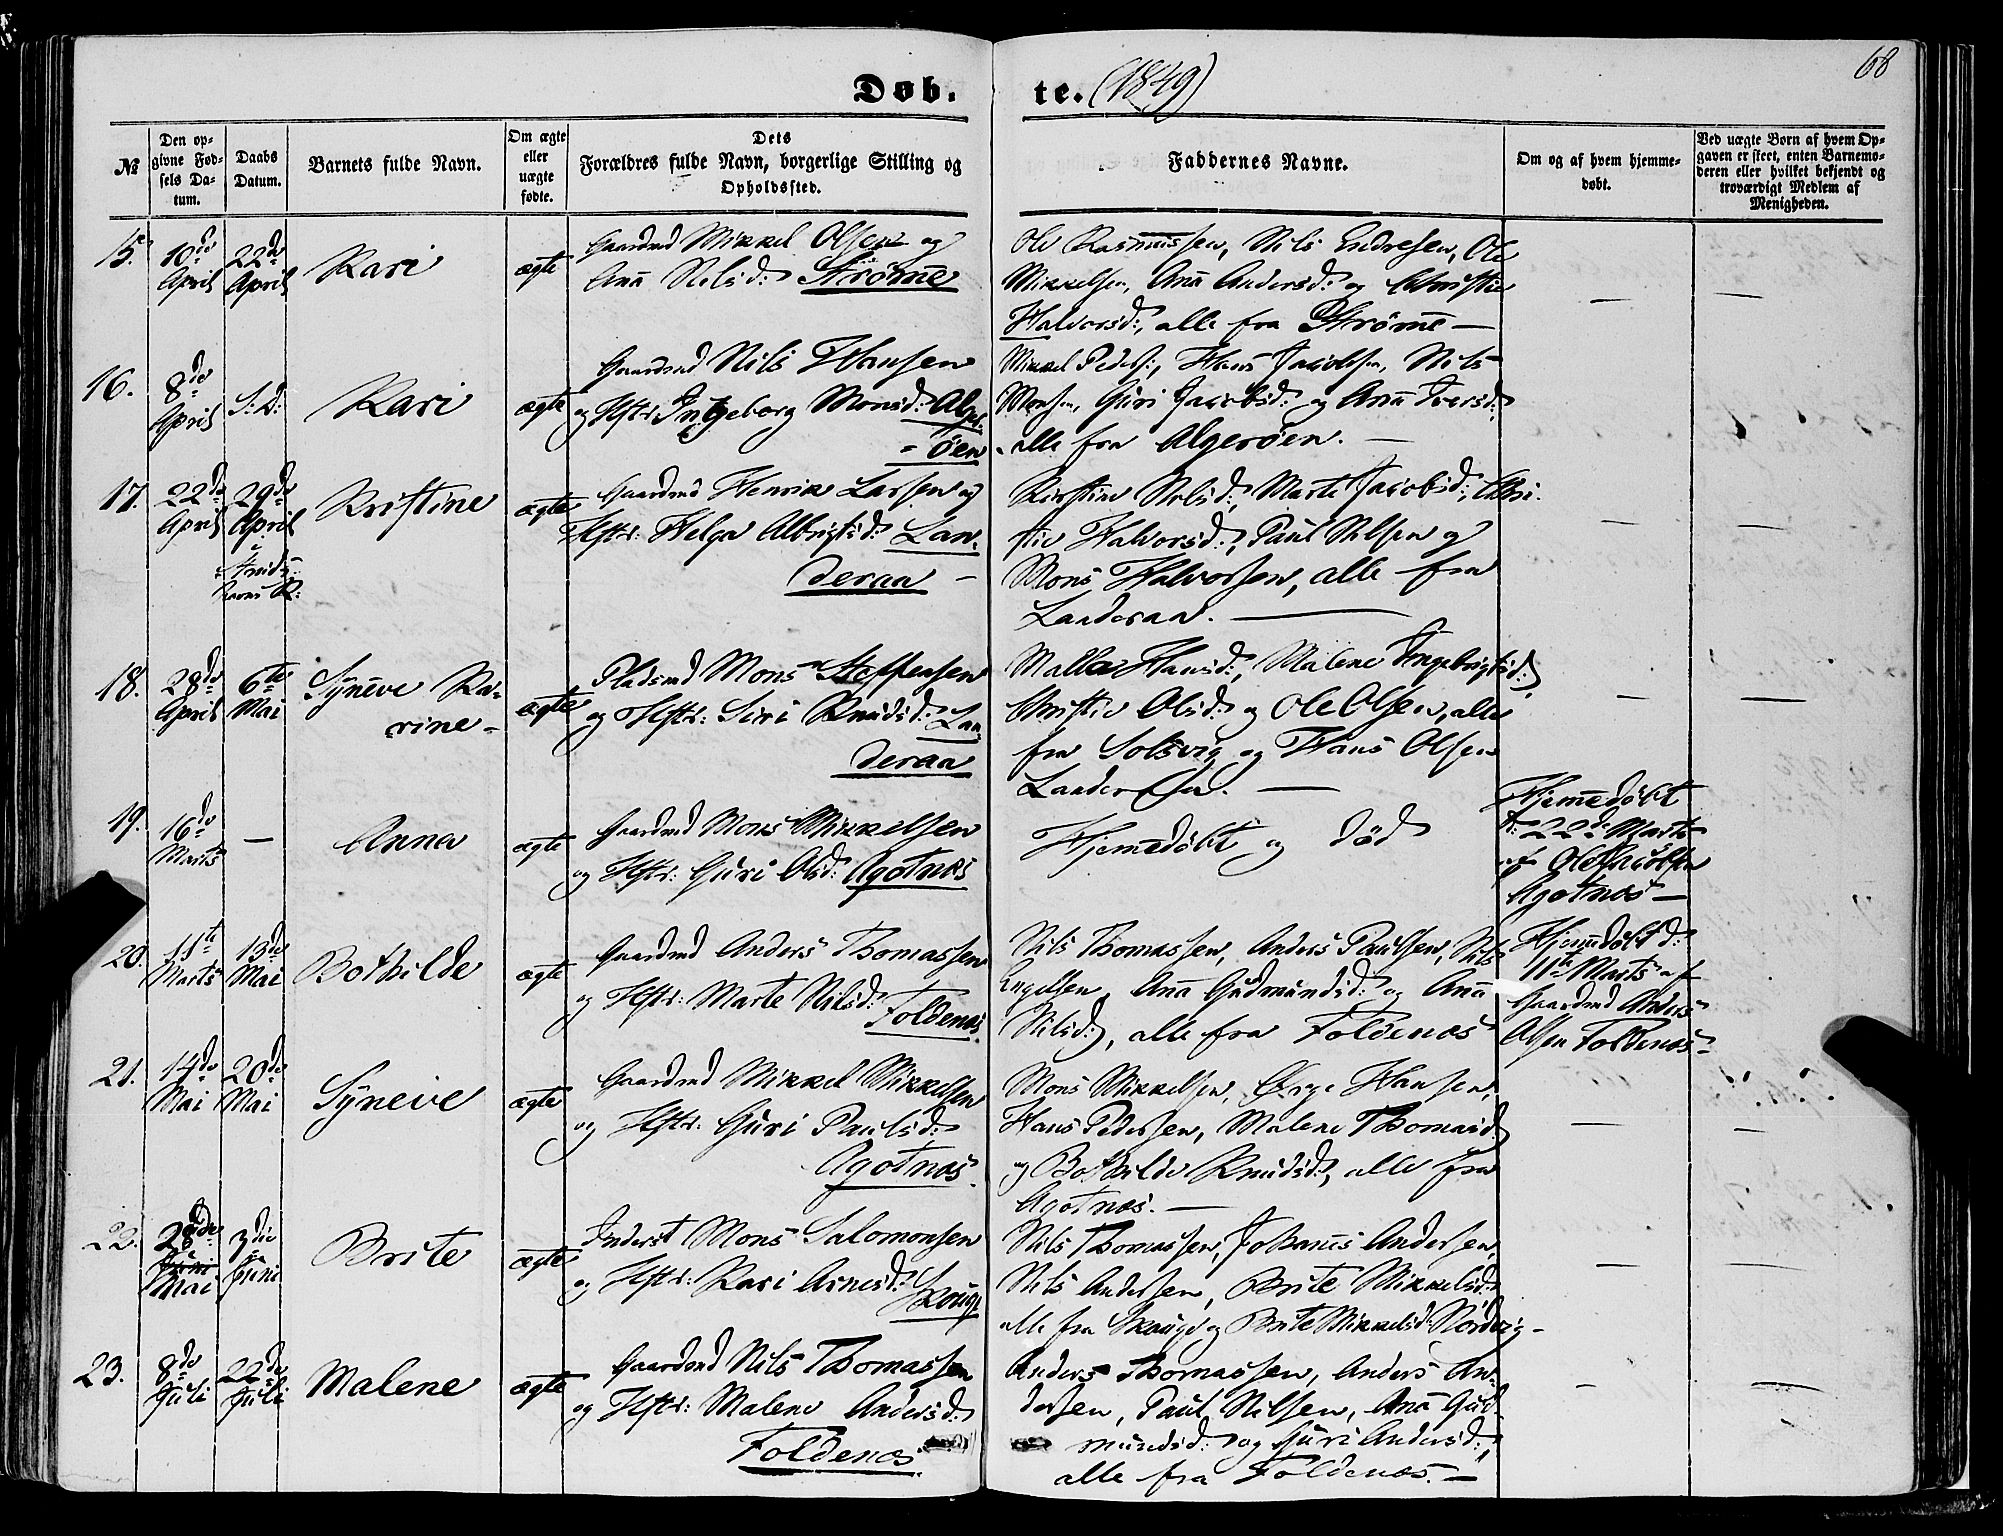 68
Døb. te. (1849)
№
Den opgivne Fødsels Datum.
Daabs Datum.
Barnets fulde Navn.
Om ægte eller uægte fødte.
Dets Forældres fulde Navn, borgerlige Stilling og Opholdssted.
Faddernes Navne.
Om og af hvem hjemmedøbt.
Ved uægte Børn af hvem Opgaven er skeet, enten Barnemoderen eller hvilket bekjendt og troværdigt Medlem af Menigheden.
15. 10de April 22de April Kari ægte
Gaardmd Mikkel Olsen og
Ana Nilsd: Strømme
Ole Rasmussen, Nils Endresen, Ole
Mikkelsen, Ana Andersd: og Christie
Halvorsd:, alle fra Strømme —
16. 8de April S: D: Kari ægte
Gaardmd Nils Hansen
og Hstr: Ingeborg Monsd: Alger-
öen
Mikkel Peders:, Hans Jacobsen, Nils
Monsen, Guri Jacobsd: og Ana Iversd:
alle fra Algeröen. —
17. 22de April 29de April Kristine ægte
Gaardmd Henrik Larsen og
Hstr: Helga Albrigtsd: Lan-
deraa —
Kirstine Nilsd:, Marte Jacobsd:, Chri-
stie Halvorsd:, Paul Nilsen og
Mons Halvorsen, alle fra
Landeraa. —
18. 28de April 6te Mai Syneve Ka-
rine - ægte
Pladsmd Mons Steffensen
og Hstr: Siri Knudsd: Lan-
deraa
Malla Hansd:, Malene Ingebrigtsd:,
Christie Olsd: og Ole Olsen, alle
fra Solsvig og Hans Olsen
Landeröen. —
19. 16de Marts — Anna ægte
Gaardmd Mons Mikkelsen
og Hstr: Guri Olsd: Agotnæs
Hjemedöbt og död
Hjemedöbt
d: 22de Marts
af Ole Jacobsen
Agotnæs —
20. 11te Marts 13de Mai Bothilde ægte
Gaardmd Anders Thomassen
og Hstr: Marte Nilsd:
Foldenæs.
Nils Thomassen, Anders Paulsen, Nils
Engelsen, Ana Gudmundsd: og Ana
Nilsd:, alle fra Foldenæs
Hjemedöbt d:
11te Marts af
Gaardmd Anders
Olsen Foldenæs -
21. 14de Mai 20de Mai Syneve ægte
Gaardmd Mikkel Mikkelsen
og Hstr: Guri Paulsd:
Agotnæs.
Mons Mikkelsen, Börge Hansen,
Hans Pedersen, Malene Thomasd:
og Bothilde Knudsd:, alle fra
Agotnæs. —
22. 28de Mai 3die Juni Brite ægte
Inderst Mons Salomonsen
og Hstr: Kari Arnesd: Skouge
Nils Thomassen, Johanes Andersen,
Nils Andersen, Brite Mikkelsd:
alle fra Skouge og Brite Mikkelsd: Nordvig -
23. 8de Juli 22de Juli Malene ægte
Gaardmd Nils Thomassen
og Hstr: Malene Andersd:
Foldenæs.
Anders Thomassen, Anders An-
dersen, Paul Nilsen, Ana Gud-
mundsd: og Guri Andersd:,
alle fra Foldenæs. —